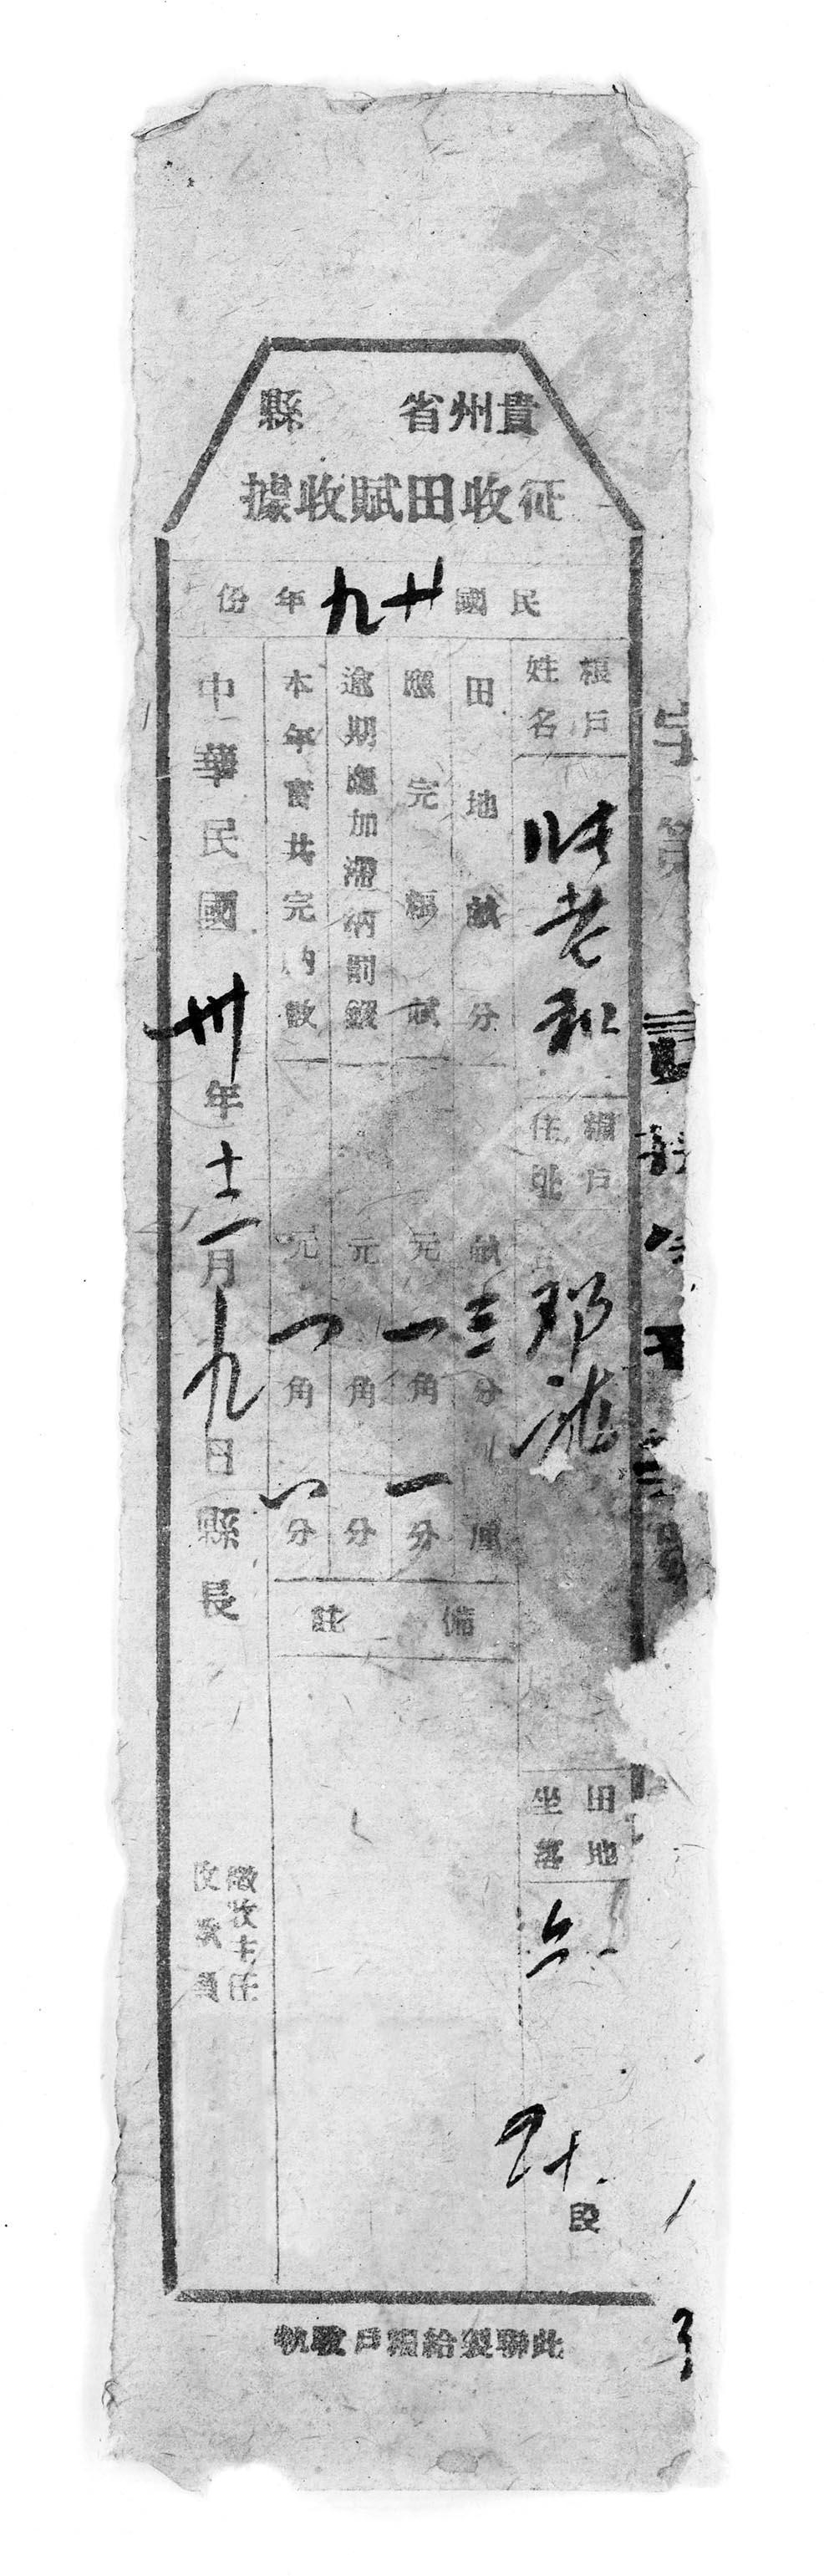 貴州省　　縣
征收田賦收據
民國廿九年份
字第
糧戶姓名
老和
糧戶住址
鄧
田地坐落
段
田地畝分
畝三分　厘
應完糧賦
元一角一分
逾期應加滯納罰鍰
元　角　分
本年實共完納數
元一角一分
備註
中華民國卅年十二月九日
縣長
徵收主任
收款員
此聯製給糧戶收執